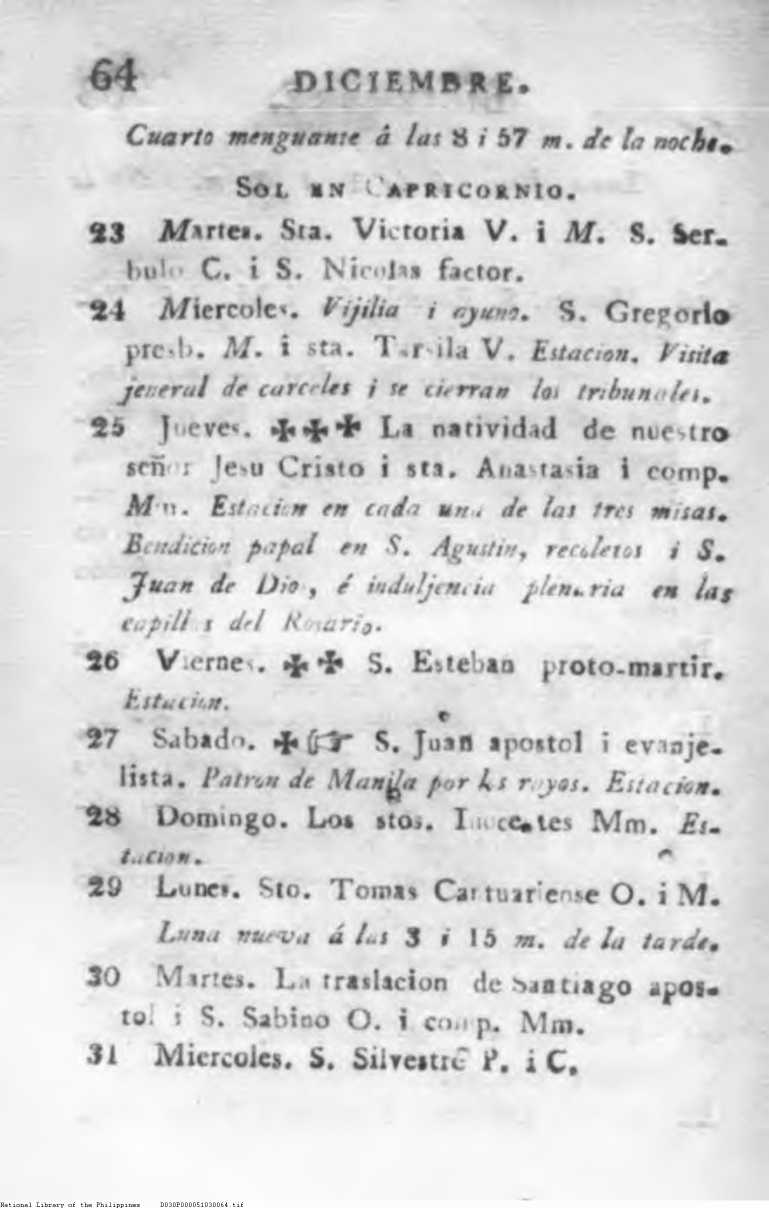 64 DICIEMBRE.
Cuarto menguante á las 8 i 57 m. de la noche.
SOL EN CAPRICORNIO.
23 Martes. Sta. Victoria V. i M. S. Ser-
bulo C. i S. Nicolas factor.
24 Miercoles. Vijilia i ayuno. S. Gregorio
presb. M. i sta. Tarsila V. Estacion. Visita
jeneral de carceles i se cierran los tribunales.
25 Jueves. ✠✠✠ La natividad de nuestro
señor Jesu Cristo i sta. Anastasia i comp.
Mm. Estacion en cada una de las tres misas.
Bendicion papal en S. Agustin, recoletos i S.
Juan de Dios, é induljencia plenaria en las
capillas del Rosario.
26 Viernes. ✠✠ S. Esteban proto-martir.
Estacion.
27 Sabado. ✠☞ S. Juan apostol i evanje-
lista. Patron de Manila por los rayos. Estacion.
28 Domingo. Los stos. Inocentes Mm. Es-
tacion.
29 Lunes. Sto. Tomas Cantuariense O. i M.
Luna nueva á las 3 i 15 m. de la tarde.
30 Martes. La traslacion de Santiago apos-
tol i S. Sabino O. i comp. Mm.
31 Miercoles. S. Silvestre P. i C.
National Library of the Philippines D030P000051030064.tif